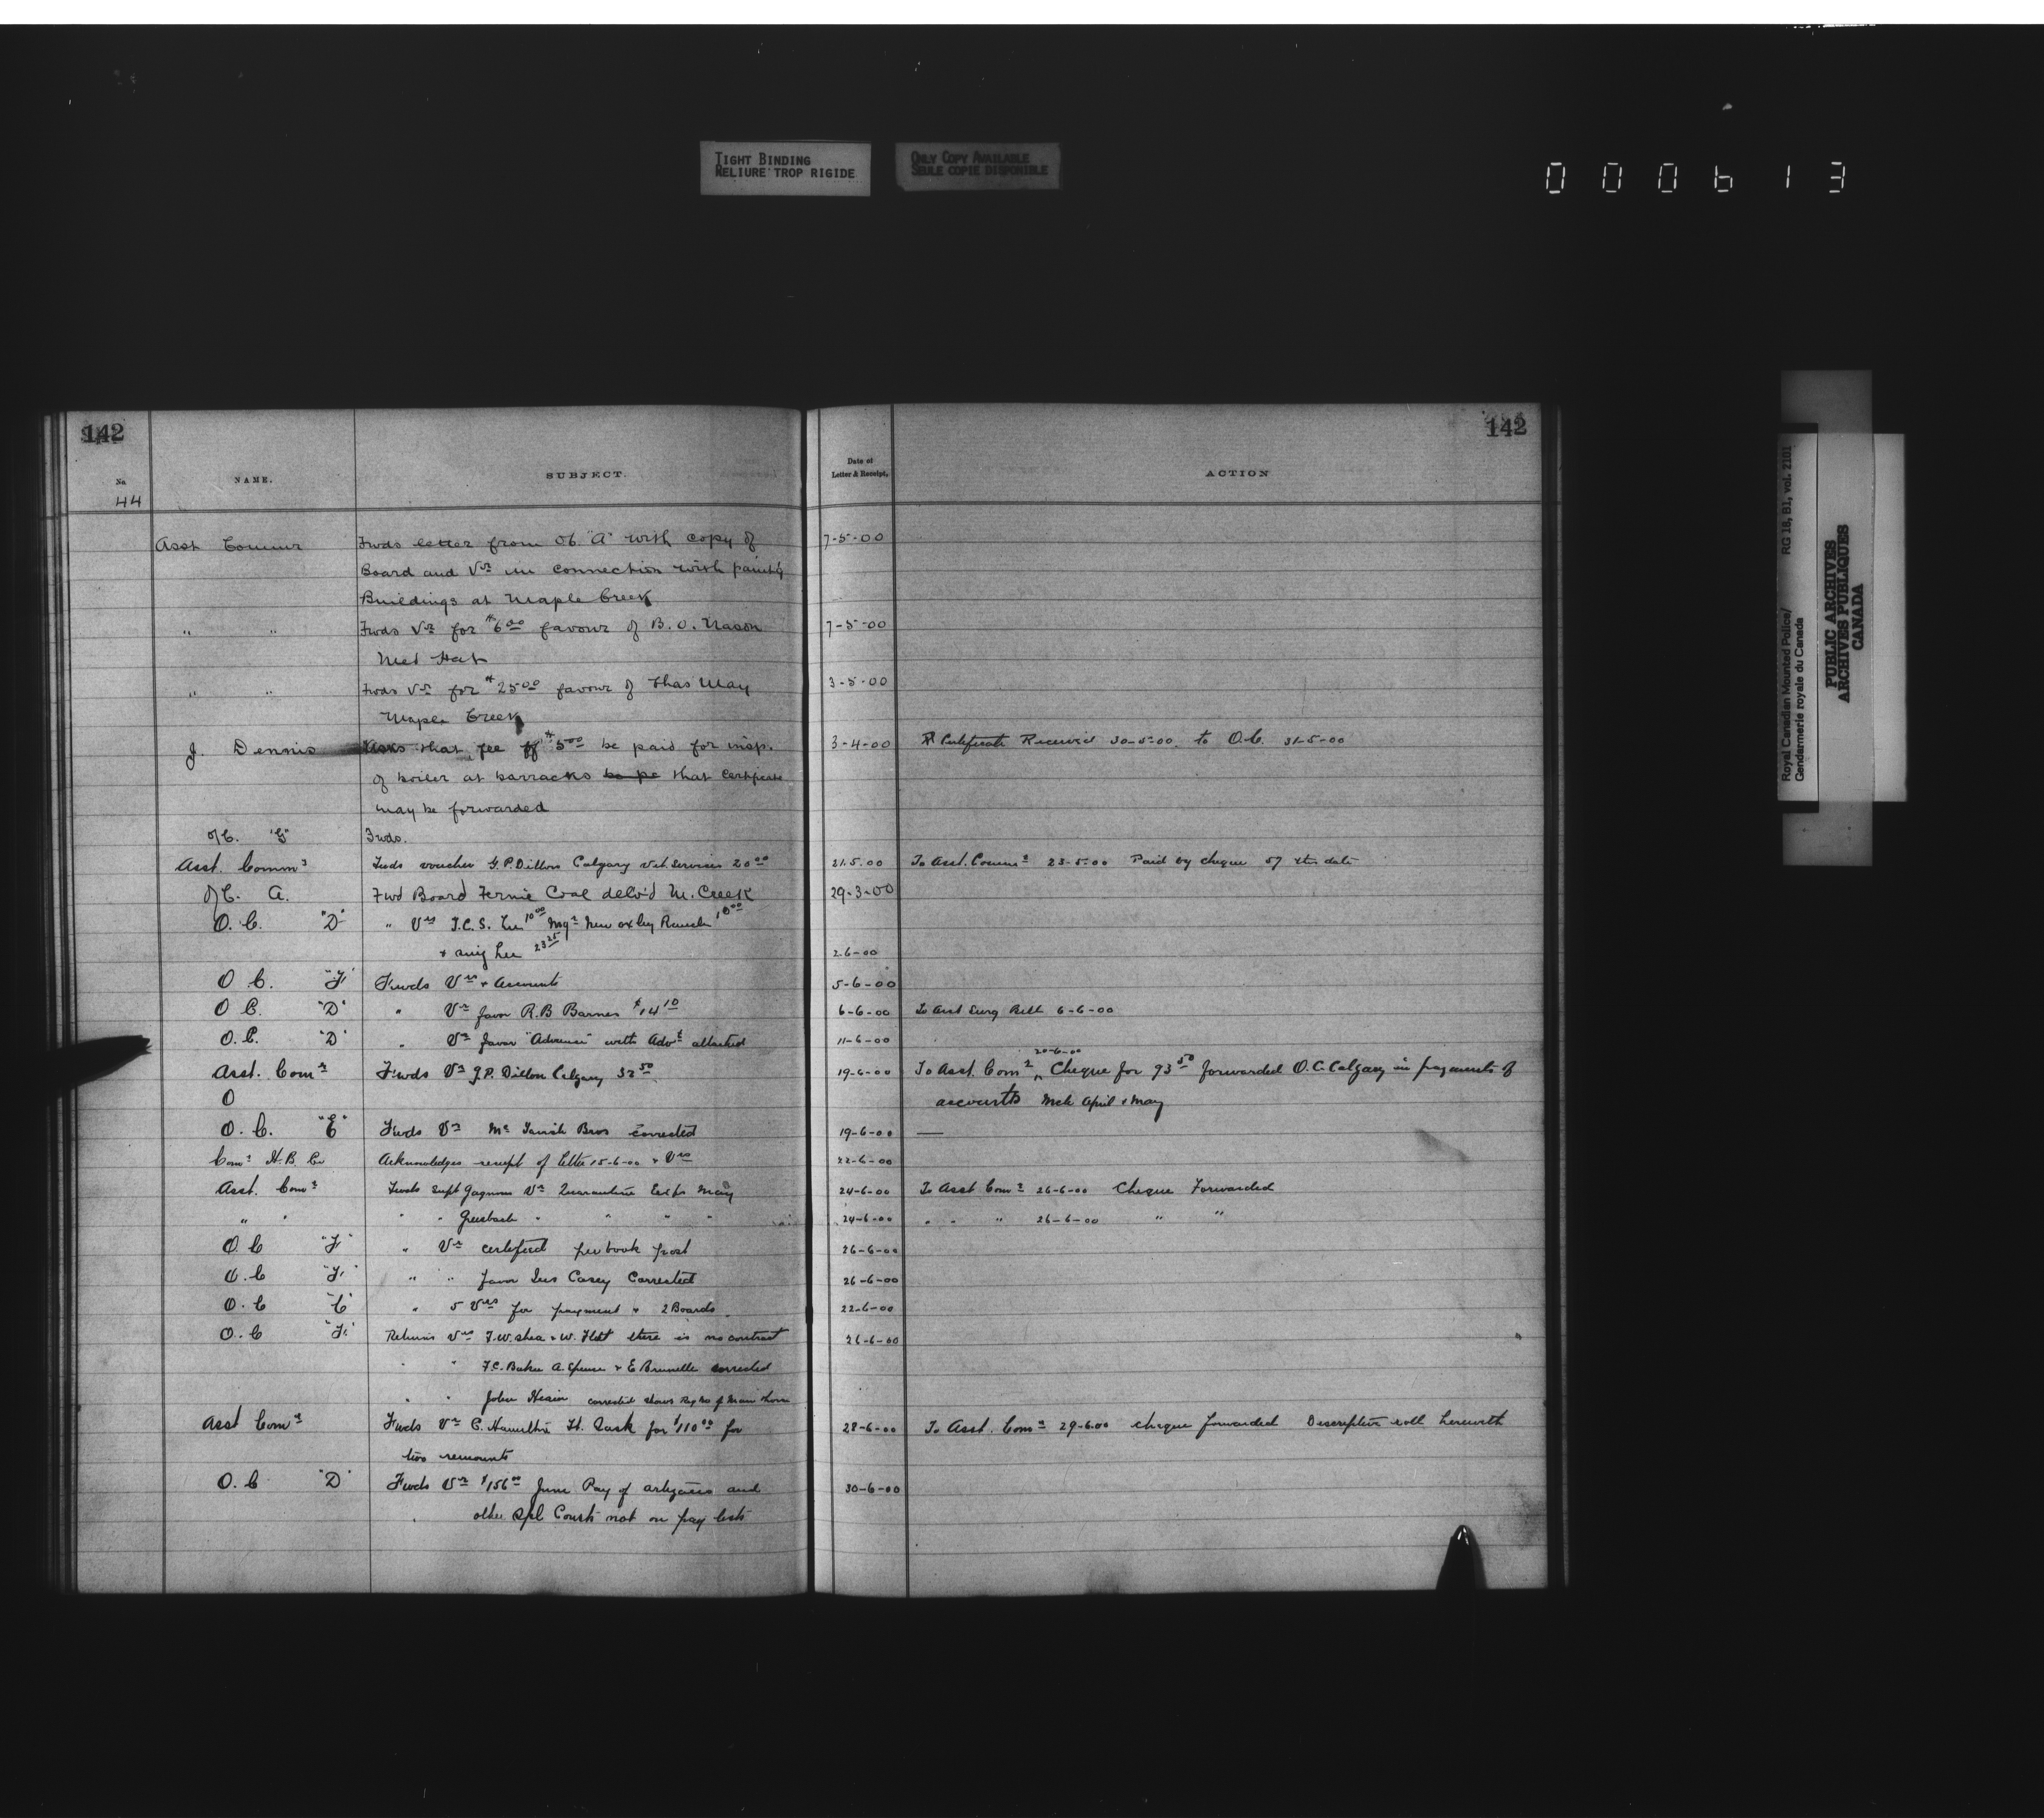 TIGHT BINDING
RELIURE TROP RIGIDE
ONLY COPY AVAILABLE
SEULE COPIE DISPONIBLE
000613
142
142
No
NAME.
SUBJECT.
Date of
Letter & Receipt,
ACTION
44
Asst Commr Fwds letter from OC. "A" with copy of 7-5-00
Board and Vrs in connection with paint'g
Buildings at Maple Creek
" " Fwds Vr for $6.00 favour of B. O. Nason 7-5-00
Med Hat
" " Fwds Vr for $25.00 favour of Thas May 3-5-00
Maple Creek
J. Dennis Asks that fee of $5.00 be paid for insp. 3-4-00 Certificate Received 30-5-00. to O.C. 31-5-00
of boiler at barracks that Certificate
may be forwarded
O/C. "G" Fwds.
Asst. Commr Fwds voucher G. P. Dillon Calgary Vet. Services 20.00 21.5.00 To Asst. Commr 23-5-00 Paid by cheque 57 this date
O/C. A. Fwd Board Fernie Coal deliv'd M. Creek 29-3-00
O. C. "D" " Vrs T.C.S. 10.00 Mgr New Oxley Ranche 10.00
+ 23.25 2.6-00
O C. "F" Fwds Vrs + Accounts 5-6-00
O C. "D" " Vr favor R. B Barnes $14.10 6-6-00 To Asst Surg Bell 6-6-00
O. C. "D" " Vr favor "Advance" with Advt attached 11-6-00
20-6-00
Asst. Comr Fwds Vr G. P. Dillon Calgary 32.50 19-6-00 To Asst. Comr Cheque for 93.50 forwarded O. C. Calgary in payments of
O accounts Mch April & May
O. C. "E" Fwds Vr Mc Tavish Bros corrected 19-6-00 —
Comr H. B. Co Acknowledges receipt of letter 15-6-00 & Vrs 22-6-00
Asst. Comr Fwds Supt Gagnons Vr Quarantine May 24-6-00 To Asst Comr 26-6-00 Cheque Forwarded
" " " " Griesbach " " " " 24-6-00 " " " 26-6-00 " "
O. C "F" " Vr certified per book post 26-6-00
O. C "F" " " favor Casey Corrected 26-6-00
O. C " 5 Vrs for payment & 2 Boards 22-6-00
O. C "F" Returns Vrs T. W. Shea & W. there is no contract 26-6-00
" " F. C. Baker A. Spence & E Brunelle corrected
" " John corrected shows Reg No of
Asst Comr Fwds Vr C. Hamilton Ft. Sask for $110.00 for 28-6-00 To Asst. Comr 29-6-00 cheque forwarded Descriptive roll herewith
two remounts
O. C "D" Fwds Vr $156.00 June Pay of artizans and 30-6-00
other Spl Consts not on pay lists
Royal Canadian Mounted Police/ RG 18, B1, vol. 2101
Gendarmerie royale du Canada
PUBLIC ARCHIVES
ARCHIVES PUBLIQUES
CANADA